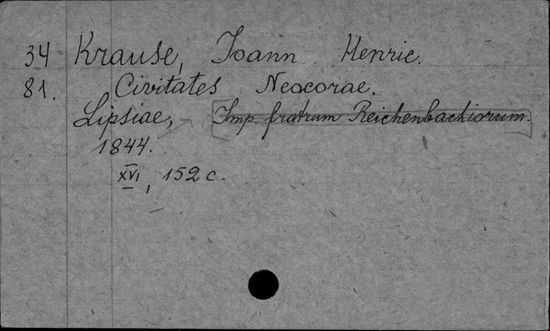 34 Krause, Ioann Henric.
81. Civitates Neocorae.
Lipsiae, Imp. fratrum Reichenbachiorum.
1844.
XVI, 152 c.